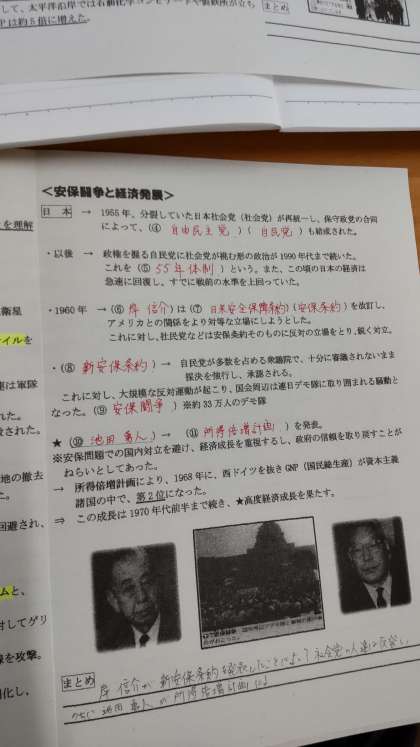 して、太平洋沿岸では石油化学コンビナートや製鉄所が立ち
は約5倍に増えた。
まとめ
を理解
衛星
イルを
は軍隊
れた。
された。
地の撤去
た。
回避され、
ムと、
対してゲリ
線を攻撃。
化し、
＜安保闘争と経済発展＞
日本 → 1955年、分裂していた日本社会党（社会党）が再統一し、保守政党の合同
によって、（④ 自由民主党 ）（ 自民党 ）も結成された。
・以後 → 政権を握る自民党に社会党が挑む形の政治が1990年代まで続いた。
これを（⑤ 55年体制 ）という。また、この頃の日本の経済は
急速に回復し、すでに戦前の水準を上回っていた。
・1960年 →（⑥ 岸 信介 ）は（⑦ 日米安全保障条約）（安保条約）を改訂し、
アメリカとの関係をより対等な立場にしようとした。
これに対し、社民党などは安保条約そのものに反対の立場をとり、鋭く対立。
・（⑧ 新安保条約 ）→ 自民党が多数を占める衆議院で、十分に審議されないまま
採決を強行し、承認される。
これに対し、大規模な反対運動が起こり、国会周辺は連日デモ隊に取り囲まれる騒動と
なった。（⑨ 安保闘争 ）※約33万人のデモ隊
★（⑩ 池田 勇人 ）→（⑪ 所得倍増計画 ）を発表。
※安保問題での国内対立を避け、経済成長を重視するし、政府の信頼を取り戻すことが
ねらいとしてあった。
→ 所得倍増計画により、1968年に、西ドイツを抜きGNP（国民総生産）が資本主義
諸国の中で、第2位になった。
⇒ この成長は1970年代前半まで続き、★高度経済成長を果たす。
まとめ
岸 信介が新安保条約を発表したことによって社会党の人達は反発し
のちに池田 勇人の所得倍増計画によ